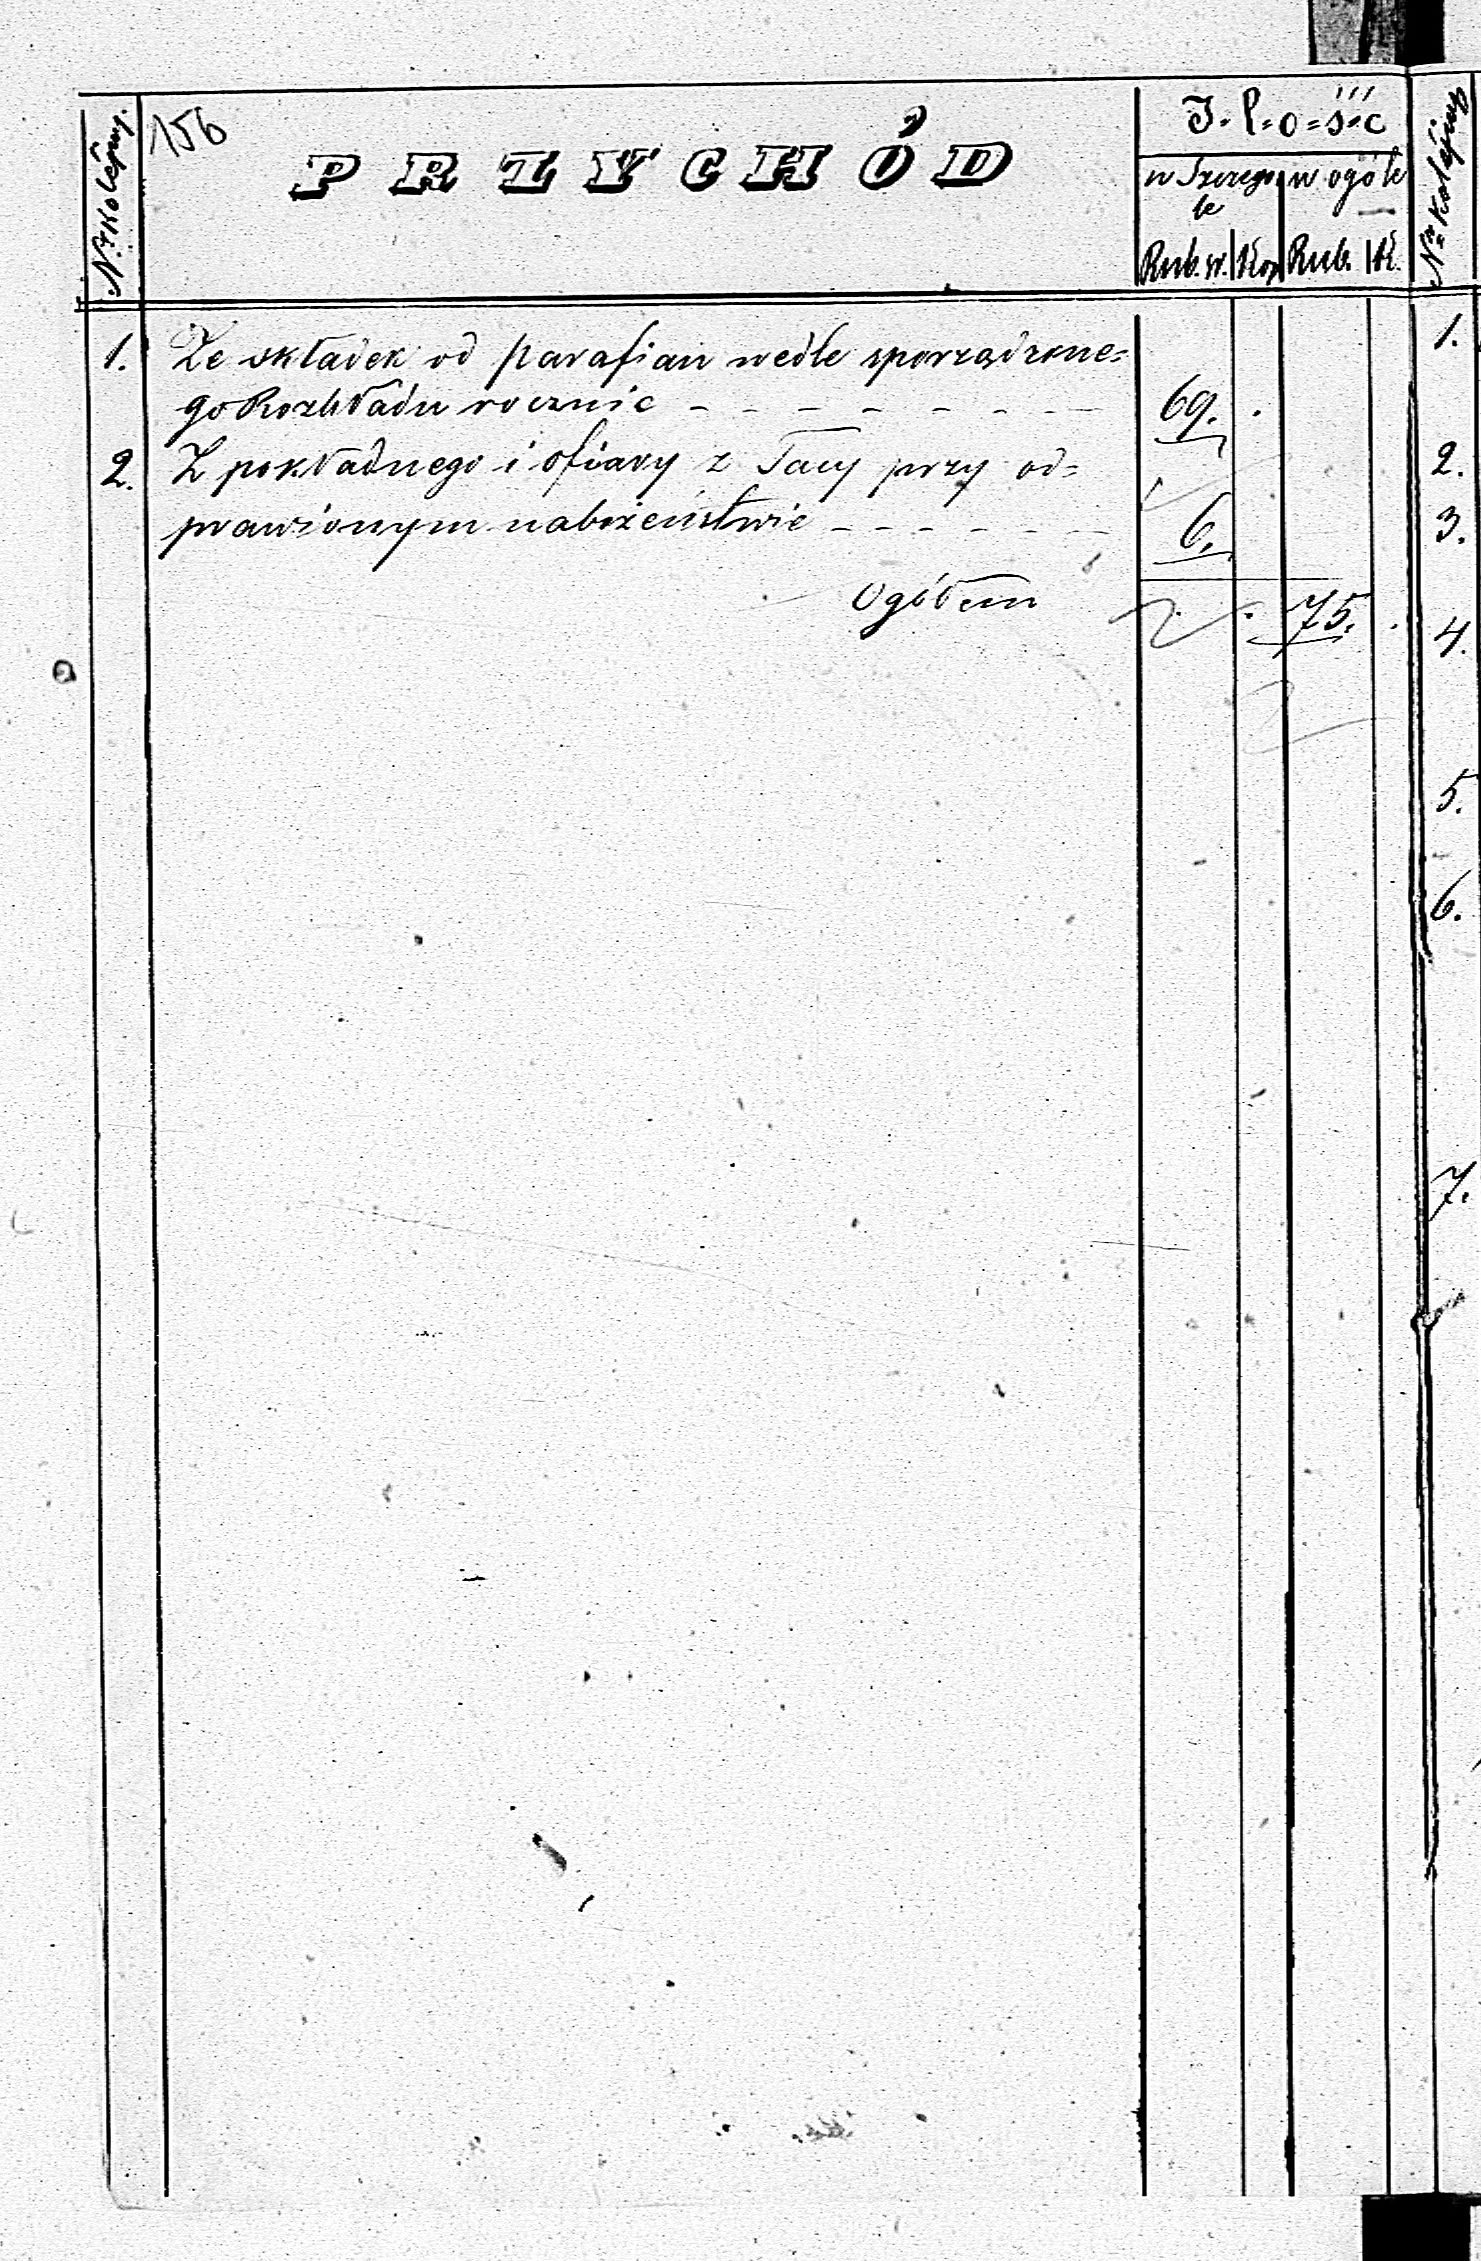 Nr. Kolejny.
156
PRZYCHÓD
I=l=o=ś=ć
w Szczegó w ogóle
le
Rub. sr. Kop. Rub. K.
Nr. Kolejny
1. Ze składek od parafian wedle sporządzone=
go Rozkładu rocznie - - - - - - - - 69. .
2. Z pokładnego i ofiary z Tacy przy od=
prawionym nabożeństwie - - - - - - 6.
Ogółem . . 75. .
1.
2.
3.
4.
5.
6.
7.